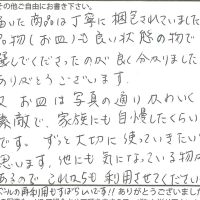 その他ご自由にお書き下さい。
届いた商品は丁寧に梱包されていました
品物(お皿)も良い状態の物で
選んでくださったのが良く分かりました
ありがとうございます。
又、お皿は写真の通りかわいく
素敵で、家族にも自慢したくらい
です。ずっと大切に使っていきたい
思います。他にも気になっている物が
あるので、これからも利用させてください
の再利用もすばらしいです!!ありがとうございました